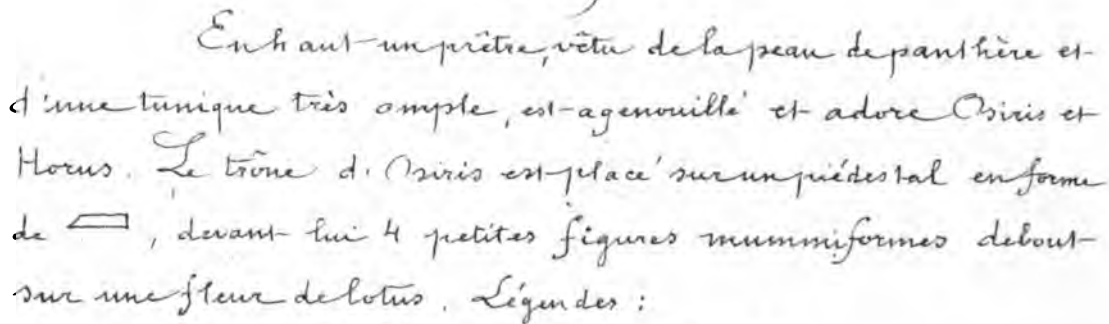 En haut un prêtre, vêtu de la peau de panthère et
d'une tunique très ample, est agenouillé et adore Osiris et
Horus. Le trône d'Osiris est placé sur un piédestal en forme
de 𓐙, devant lui 4 petites figures mummiformes debout
sur une fleur de lotus. Légendes :